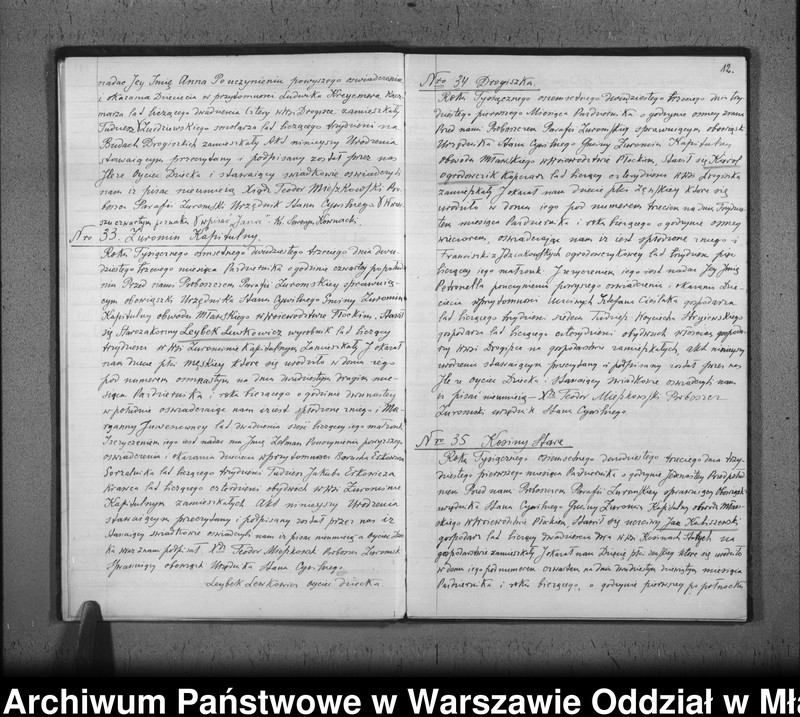 nadac Jey Jmię Anna Po uczynieniu powyszego oswiadczenia
i okazania Dziecięcia w przytomnosci Ludwika
lad bieżącego dwadziescia Cztery w Wsi Drogisce zamieszkały
Tudziesz smolarza lad bieżącego trzydziesci na
Budach Drogiskich zamieszkały Akt ninieyszy Urodzenia
stawaiącym przeczytany i podpisany został przez nas
Jle ze Oyciec Dziecka i stawaiący swiadkowie oswiadczyli
nam iz pisac nieumieią Xiądz Teodor Mieszkowski Pro-
boszcz Parafii Zuromski Urzędnik Stanu Cywilnego
Nro 33. Zuromin Kapitulny.
Roku Tysiącznego osmsetnego dwudziestego trzeciego dnia dwu-
dziestego trzeciego miesiąca Pazdziernika o godzinie czwarty po połud-
niu Przed nami Proboszczem Parafii Zuromskiey sprawuią-
cym obowiązki Urzędnika Stanu Cywilnego Gminy Zuromin
Kapitulny obwodu Mławskiego w Woiewodztwie Płockim, Stawił
się Starozakonny Leybek Lewkowicz wyrobnik lad bieżący
trzydziesci w Wsi Zurominie Kapitulnym Zamieszkały J okazał
nam dziecie płci męskiey ktore się urodziło w domu iego
pod numerem osmnastym na dniu dwudziestym drugim mie-
siąca Pazdziernika i roku bieżącego o godzinie dwunastey
w południe oswiadczaiąc nam iz iest spłodzone z niego i Ma-
ryanny lad dwadziescia szesc bieżący iego małzonki
Jz zyczeniem iego iest nadac mu Jmię Zelman Po uczynieniu powyzszego
oswiadczenia i okazania dziecięcia w przytomnosci Borucha
lad bieżącego trzydziesci Tudziesz Jakuba
Krawca lad bieżącego czterdziesci obydwoch w Wsi Zurominie
Kapitulnym zamieszkałych Akt ninieyszy Urodzenia
stawaiącym przeczytany i podpisany został przez nas iz
stawaiący swiadkowie oswiadczyli nam iz pisac nieumieią a Oyciec Dzie-
cka wraz z nam podpisał Xdz Teodor Mieszkowski Proboszcz Zuromski
Sprawuiący obowiązki Urzędnika Stanu Cywilnego.
Leybek Lewkowicz oyciec dziecka
12.
Nro 34 Drogiszka.
Roku Tysiącznego osmsetnego dwudziestego trzeciego dnia trzy-
dziestego pierwszego Miesiąca Pazdziernika o godzinie osmey zrana
Przed nami Proboszczem Parafii Zuromskiey sprawuiącym obowiązki
Urzędnika Stanu Cywilnego Gminy Zuromin Kapitulny
obwodu Mławskiego w Woiewodztwie Płockim, Stawił się Karol
ogrodowczik lad bieżący czterdziesci w Wsi Drogiszka
zamieszkały J okazał nam dziecie płci Zęnskiey ktore się
urodziło w domu iego pod numerem trzecim na dniu Trzydzie-
stem miesiąca Pazdziernika i roku bieżącego o godzinie osmey
wieczorem, oswiadczaiąc nam iz iest spłodzone z niego i
Franciszki z lad trzydziesci pięc
bieżący iego małzonki J zyczeniem iego iest nadac Jey Jmię
Petronella po uczynieniu powyszego oswiadczenia i okazania Dzie-
cięcia w przytomnosci Uczciwych Stefana Cieslaka gospodarza
lad bieżącego trzydziesci siedem Tudziesz Woyciecha
gospodarza lad bieżącego czterdziesci obydwoch
w Wsi Drogisce na gospodarstwie zamieszkałych, Akt ninieyszy
urodzenia stawaiącym przeczytany i podpisany został przez nas
Jle ze oyciec Dziecka i stawaiący swiadkowie oswiadczyli nam
iz pisac nieumieią Xdz Teodor Mieszkowski Proboszcz
Zuromski urzędnik Stanu Cywilnego.
Nro 35 Kosiny Stare
Roku Tysiącznego osmsetnego dwudziestego trzeciego dnia trzy-
dziestego pierwszego miesiąca Pazdziernika o godzinie Jedenastey Przed połud-
niem Przed nami Proboszczem Parafii Zuromskiey sprawuiącym obowiązki
urzędnika Stanu Cywilnego Gminy Zuromin Kapitulny obwodu Mław-
skiego w Woiewodztwie Płockim, Stawił się uczciwy Jan Kaliszewski,
gospodarz lad bieżący dwadziescia dwa w Wsi Kosinach Starych na
gospodarstwie zamieszkały J okazał nam Dziecie płci zenskiey ktore się urodziło
w domu iego pod numerem czwartem na dniu dwudziestym dziewiątym miesiąca
Pazdziernika i roku bieżącego, o godzinie pierwszey po połnocku
Archiwum Państwowe w Warszawie Oddział w Mła